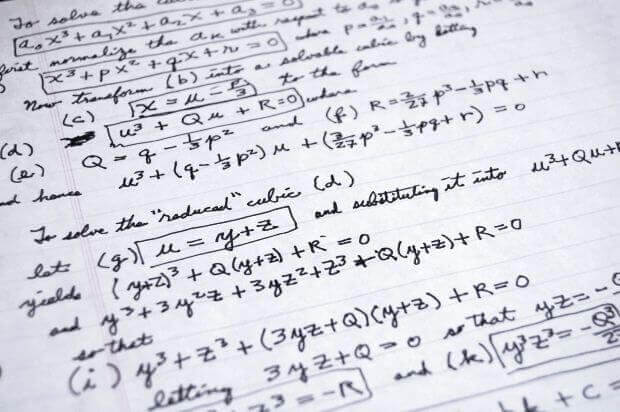 To solve the
a₀x³ + a₁x² + a₂x + a₃ = 0
first normalize the aₖ with respect to a₀
x³ + px² + qx + r = 0 where p = a₁/a₀, q = a₂/a₀,
Now transform (b) into a solvable cubic by letting
(c) x = u - p/3 to the form
(d) u³ + Qu + R = 0 where
(e) Q = q - 1/3 p² and (f) R = 2/27 p³ - 1/3 pq + r
and hence u³ + (q - 1/3 p²) u + (2/27 p³ - 1/3 pq + r) = 0
To solve the "reduced" cubic (d)
let (g) u = y + z and substituting it into u³ + Qu + R
yields (y+z)³ + Q(y+z) + R = 0
and y³ + 3y²z + 3yz² + z³ + Q(y+z) + R = 0
so that
(i) y³ + z³ + (3yz + Q)(y+z) + R = 0
letting 3yz + Q = 0 so that yz = -
z³ = -R and (k) y³z³ = -Q³/2
+ c =